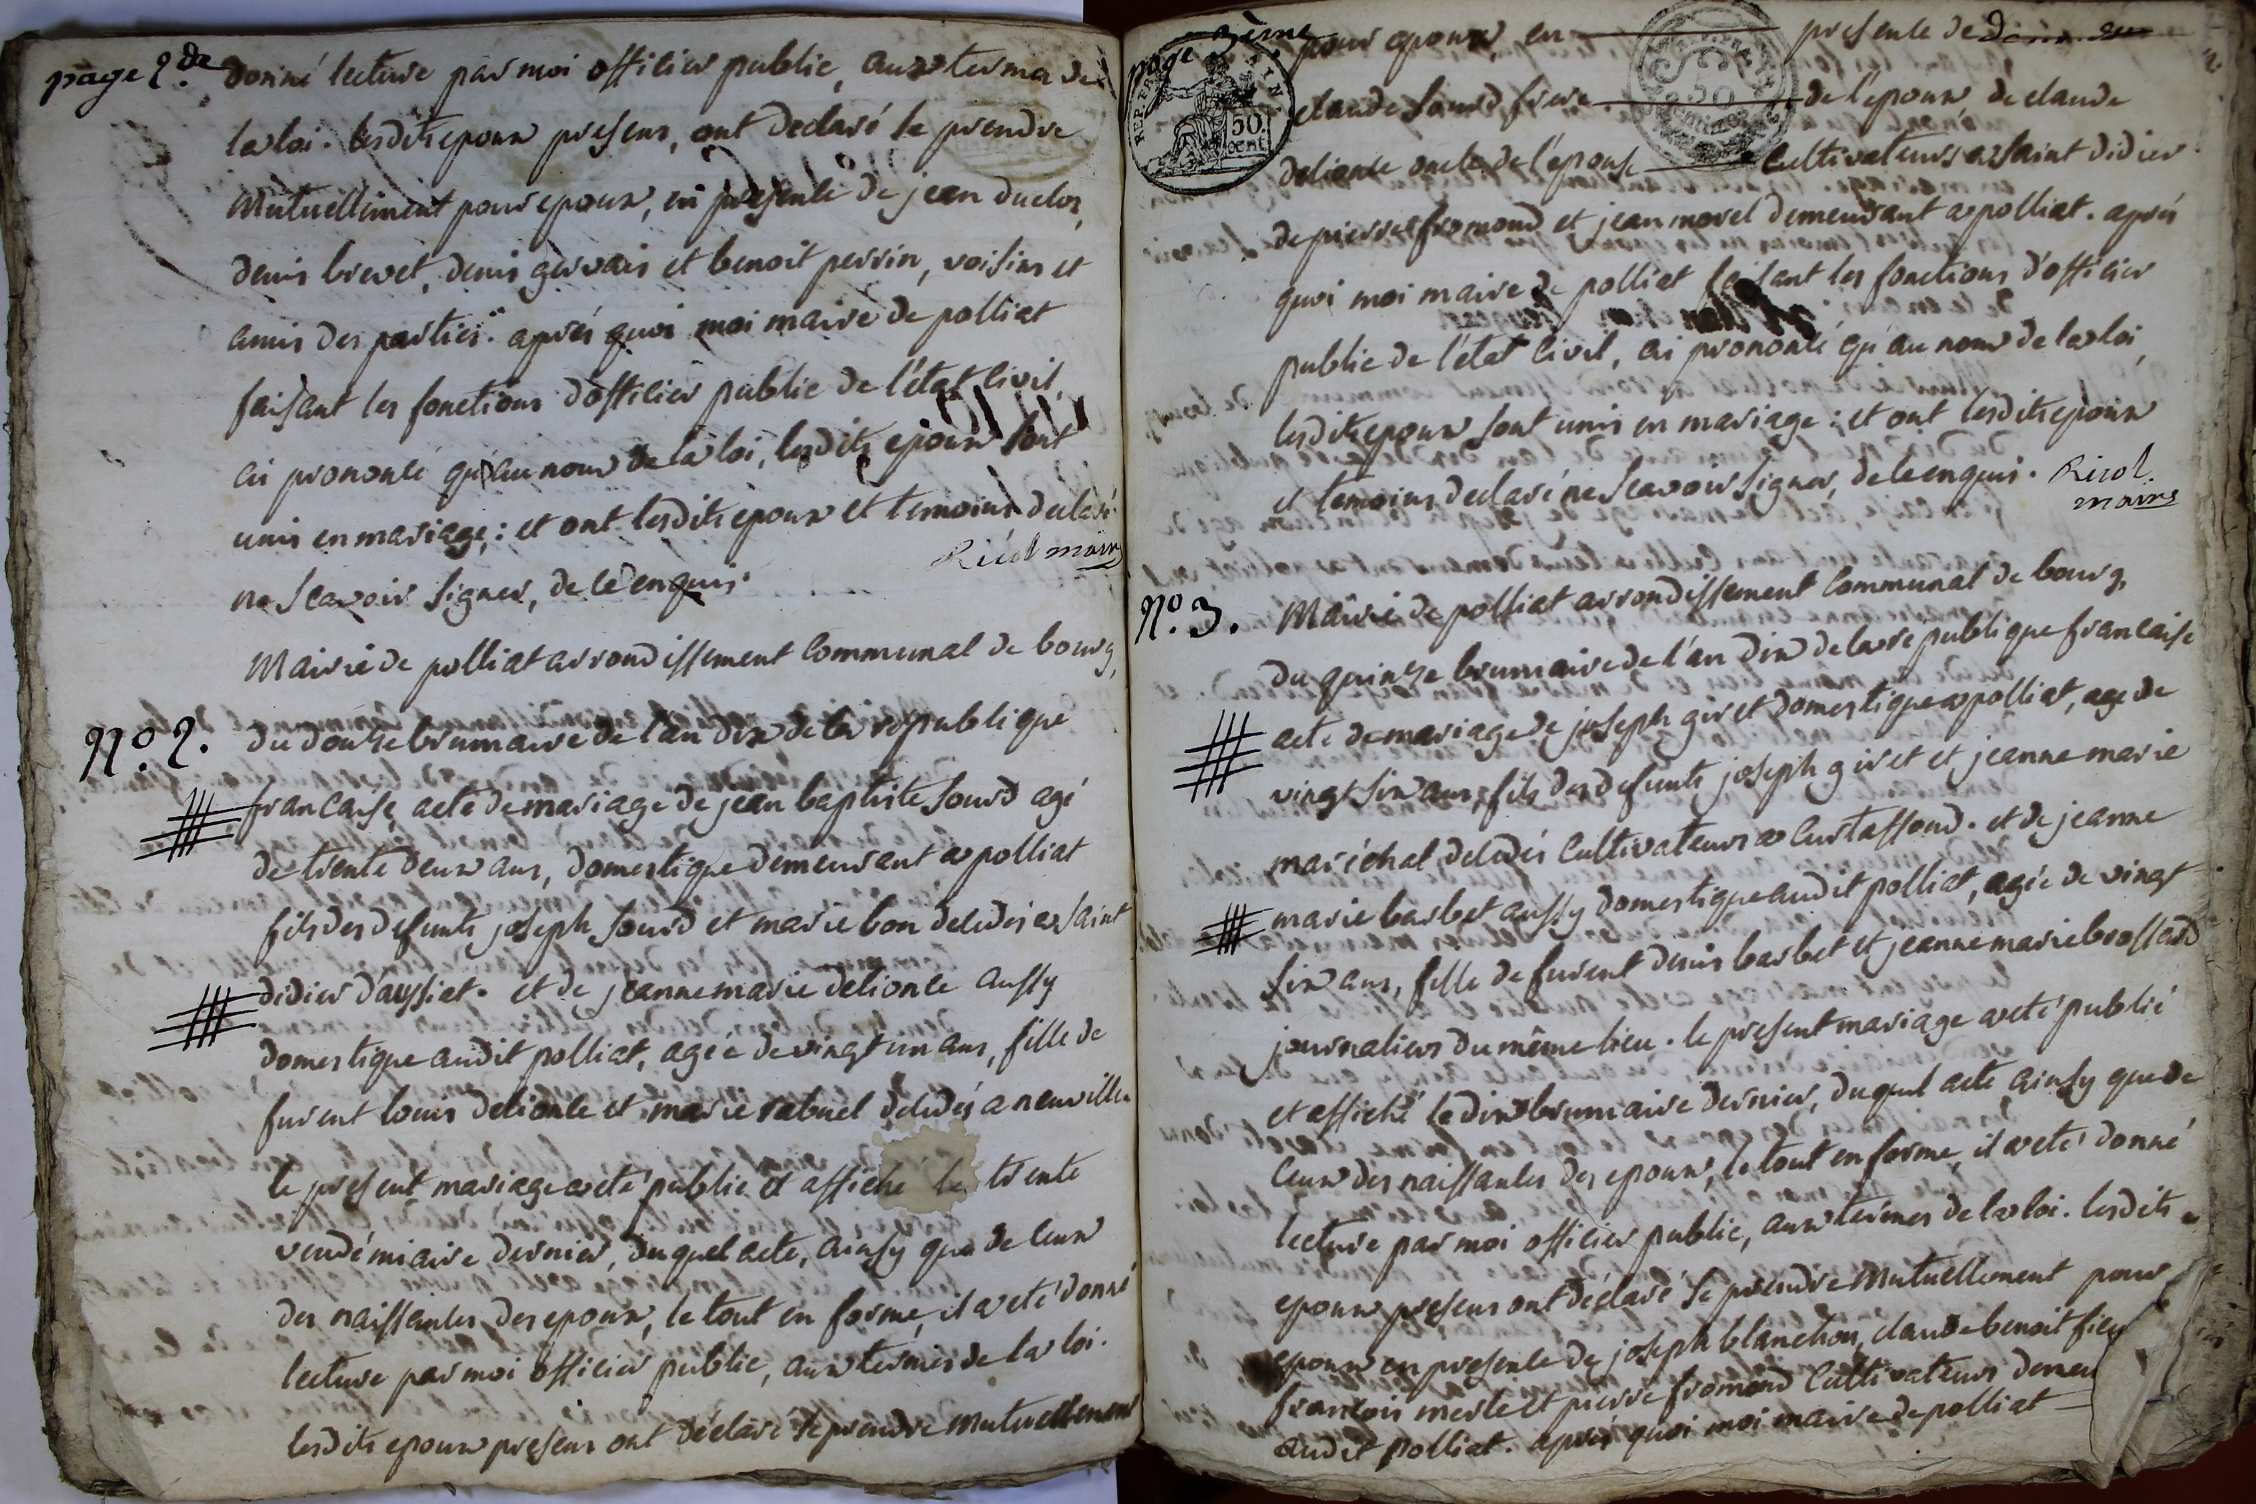 page 2.de
donné lecture par moi officier public, aux termes de
la loi. lesdits epoux presens, ont declaré se prendre
mutuellement pour epoux, en presence de jean duclos,
denis brevet, denis gervais et benoit perrin, voisins et
amis des parties. aprés quoi moi maire de polliat
faisant les fonctions d'officier public de l'état civil,
ai prononcé qu'au nom de la loi, lesdits epoux sont
unis en mariage; et ont lesdits epoux et temoins declaré
ne scavoir signer, de ce enquis.
Ricol maire
Mairie de polliat arrondissement communal de bourg,
No. 2.
du douze brumaire de l'an dix de la republique
francaise, acte de mariage de jean baptiste sourd agé
de trente deux ans, domestique demeurant a polliat
fils des defunts joseph sourd et marie bon décédés a saint
didier d'aussiat. et de jeanne marie delionce aussy
domestique audit polliat, agée de vingt un ans, fille de
furent louis delionce et marie rabuel décédés a neuville
le present mariage a eté publié et affiché le trente
vendémiaire dernier, duquel acte, ainsy que de ceux
des naissances des epoux, le tout en forme, il a eté donné
lecture par moi officier public, aux termes de la loi.
lesdits epoux presens ont déclaré se prendre mutuellement
page 3ème
REP. FRA.
50. cent.
50 centimes
pour epoux, en presence de
claude sourd frere de l'epoux, de claude
delionce oncle de l'epouse cultivateurs a saint didier
de pierre fromond et jean morel demeurant a polliat. aprés
quoi moi maire de polliat faisant les fonctions d'officier
public de l'état civil, ai prononcé qu'au nom de la loi,
lesdits epoux sont unis en mariage; et ont lesdits epoux
et temoins declaré ne scavoir signer, de ce enquis.
Ricol
maire
No. 3.
Mairie de polliat arrondissement communal de bourg,
du quinze brumaire de l'an dix de la republique francaise
acte de mariage de joseph giret domestique a polliat, agé de
vingt six ans, fils des defunts joseph giret et jeanne marie
maréchal décédés cultivateurs a curtaffond. et de jeanne
marie barbet aussy domestique audit polliat, agée de vingt
six ans, fille de furent denis barbet et jeanne marie brossard
journaliers du même lieu. le present mariage a eté publié
et affiché le dix brumaire dernier, duquel acte, ainsy que de
ceux des naissances des epoux, le tout en forme, il a eté donné
lecture par moi officier public, aux termes de la loi. lesdits
epoux presens ont déclaré se prendre mutuellement pour
epoux en presence de joseph blanchon, claude benoit
francois merle et pierre fromond cultivateurs
audit polliat. aprés quoi moi maire de polliat